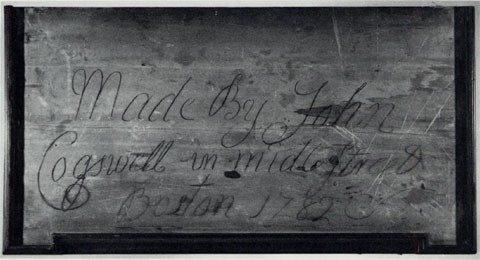 Made By John
Cogswell in midle Street
Boston 1782